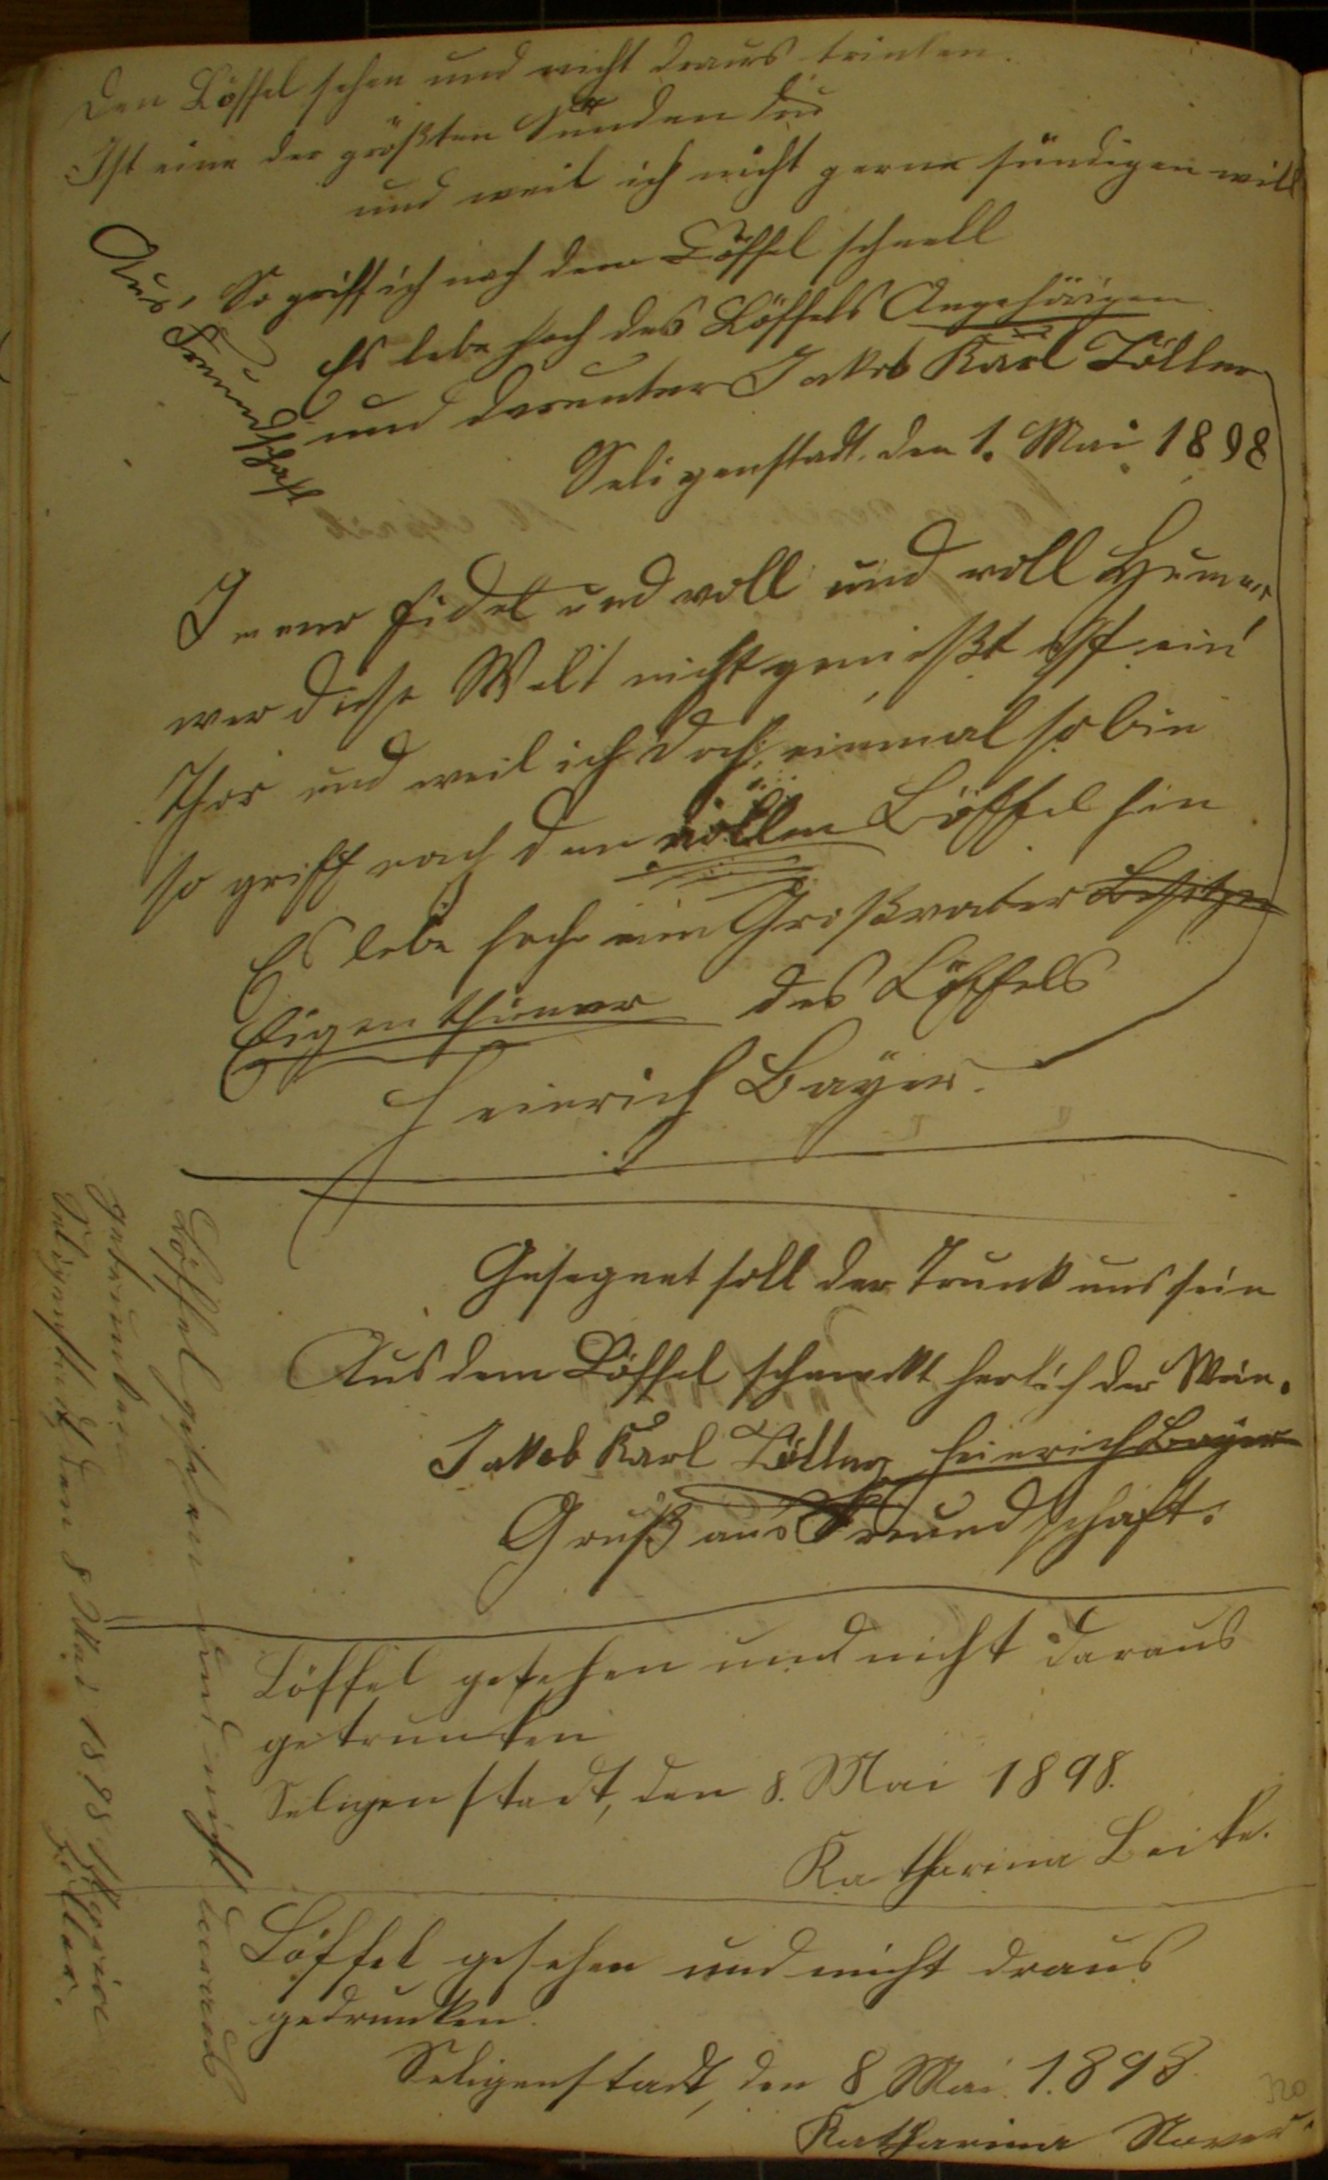 Den Löffel sehen und nicht draus trinken.
Ist eine der größten Sünden
und weil ich nicht gerne sündigen will
So griff ich nach dem Löffel schnell
Es lebe hoch des Löffels Angehörigen
und darunter Jakob Karl Zöller
Aus Freundschaft
Seligenstadt, den 1. Mai 1898
Immer fidel und voll und voll Humor
wer diese Welt nicht genießt ist ein
Thor und weil ich doch einmal so bin
so griff nach dem vollen Löffel hin
Es lebe hoch ein Großvater Besitzer
Eigenthümer des Löffels
Heinrich Bayer.
Gesegnet soll der Trunk uns sein
Aus dem Löffel schmeckt herlich der Wein.
Jakob Karl Zöller Heinrich Bayer
Gruß aus Freundschaft.
Löffel gesehen und nicht daraus
getrunken
Seligenstadt, den 8. Mai 1898.
Katharina Beike.
Löffel gesehen und nicht draus
gedrunken.
Seligenstadt, den 8 Mai 1898
Katharina
Löffel gesehen und nicht daraus
getrunken
Seligenstadt den 8 Mai 1898
Zöller.
320